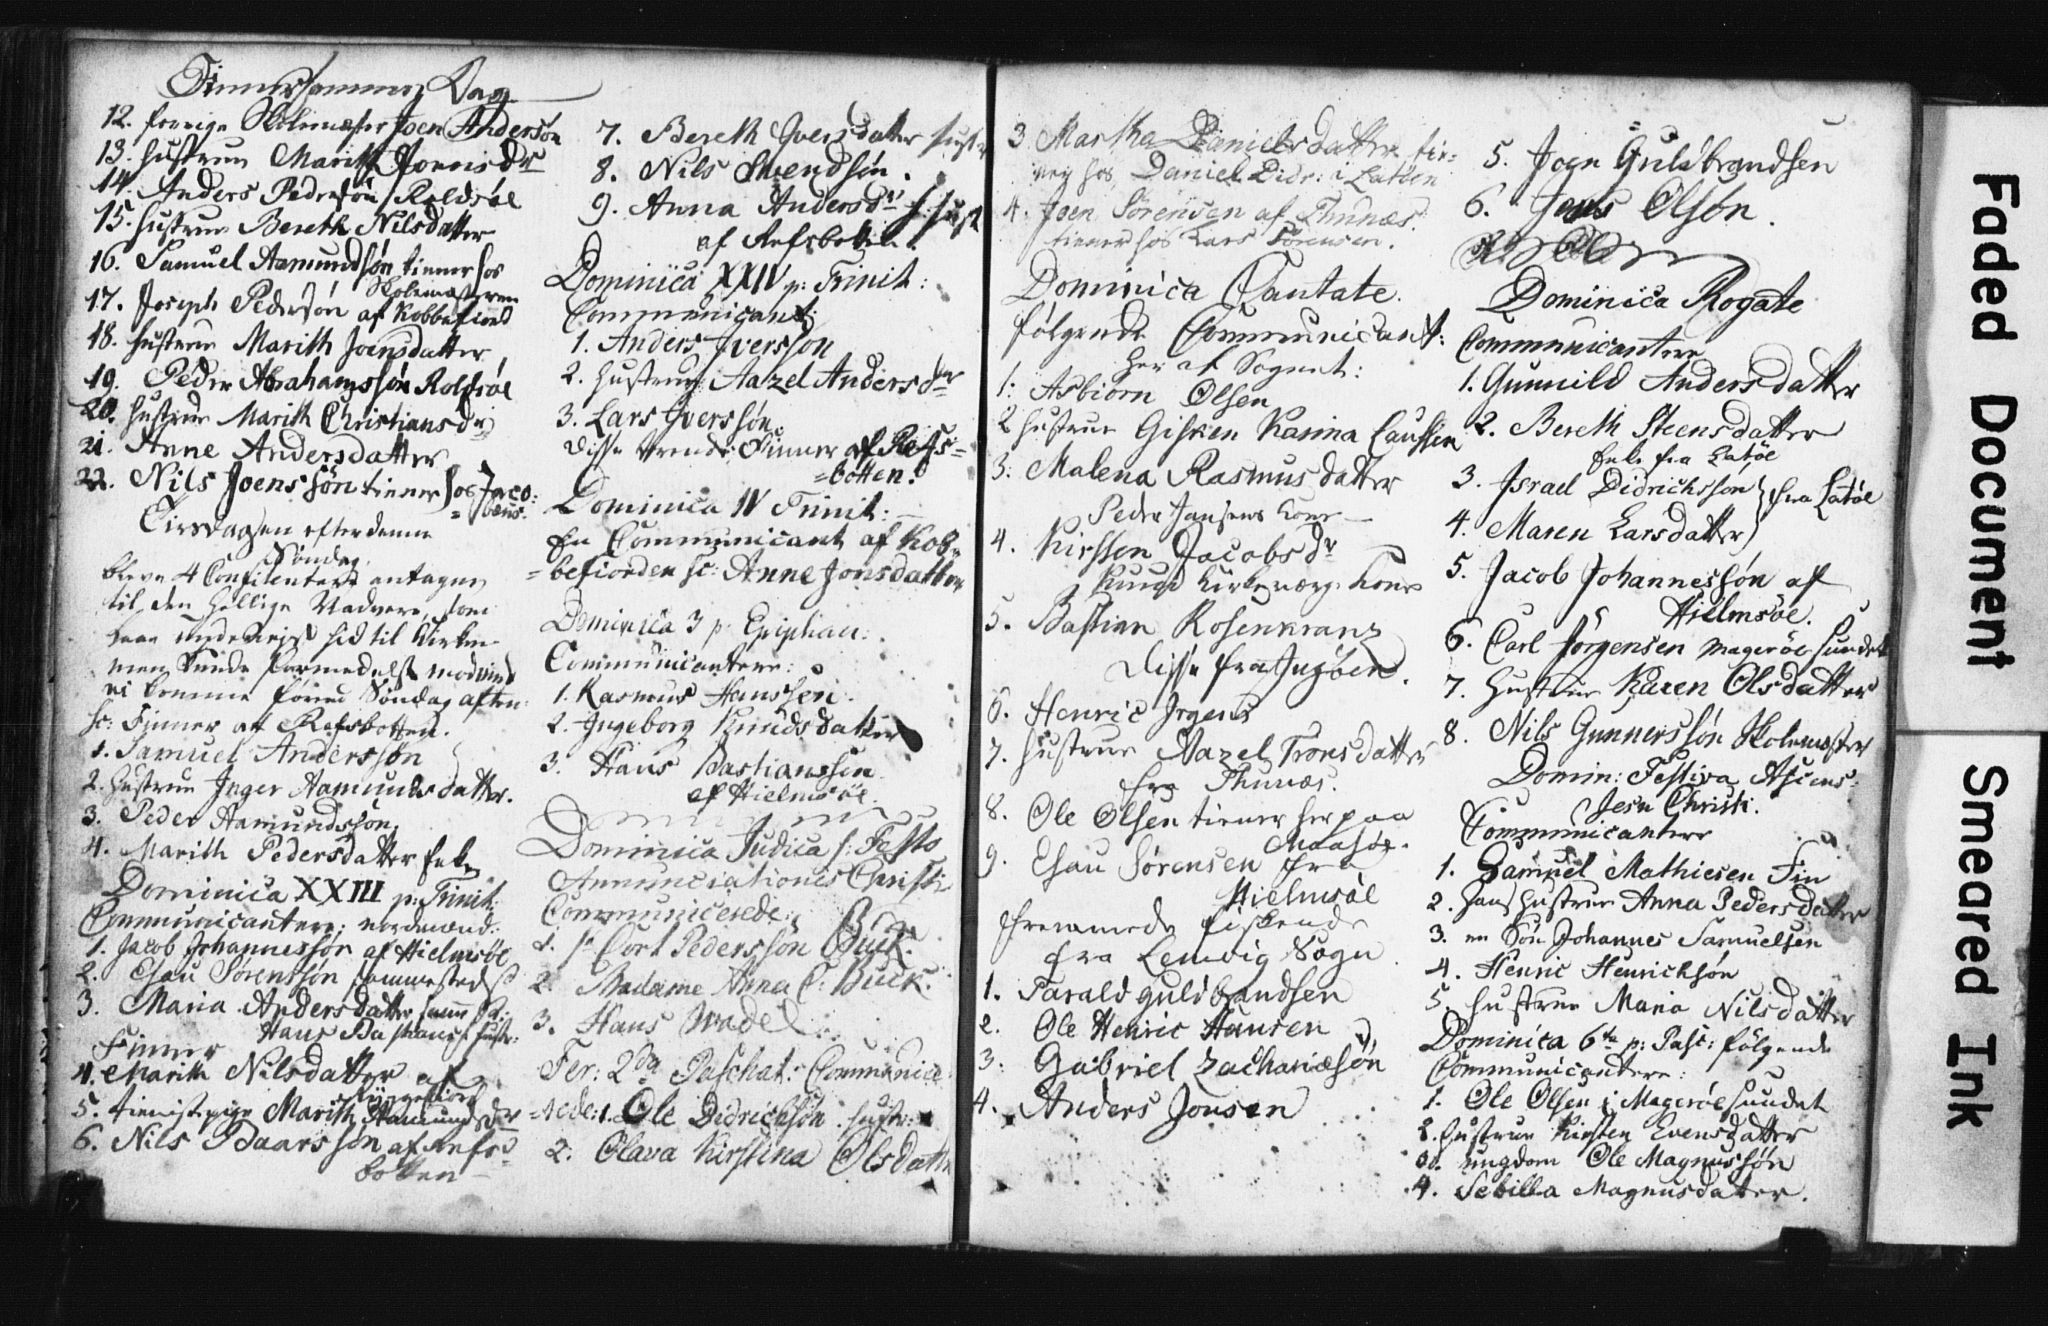 12. forrige Skolemester Joen Andersøn
13. Hustrue Marith Joensdr
14. Anders Pedersøn / Roldsøe
15. Hustrue Bereth Nilsdatter
16. Samuel Aamundsøn tiener hos
Skolemesteren
17. Joseph Pedersøn af Kobbefiord
18. Hustrue Marith Joensdatter
19. Peder Abrahamssøn Rolfsøe
20. Hustrue Marith Christiansdr
21. Anne Andersdatter
22. Nils Joenssøn tiener hos Jaco=
=bæus.
Tirsdagen efter denne
Søndag
bleve 4 Confitentere antagne
til den Hellige Nadvere, som
hid til Kirken
men kunde formedelst modvind
ei komme förend Søndag aften
sc: Finner af Refsbotten.
1. Samuel Anderssøn
2. Hustrue Inger Aamundsdatter.
3. Peder Aamundssøn
4. Marith Pedersdatter Enke
Dominica XXIII p: Trinit:
Communicantere: nordmænd:
1. Jacob Johannessøn af Hielmsøe
2. Esau Sörenssøn sammesteds
3. Maria Andersdatter
Hans Bastians: Hustr:
Finner
4. Marith Nilsdatter af
5. tienistepige Marith Aamundsdr
6. Nils Baarssøn af Refs=
botten
7. Bereth Iversdatter Hustr
8. Nils Svendsøn.
9. Anna Andersdr Hust
af Refsbotten.
Dominica XXIV p: Trinit:
Communicant:
1. Anders Iverssøn
2. Hustrue Aazel Andersdr
3. Lars Iverssøn
Disse Finner af Refs=
=botten.
Dominica IV Trinit:
En Communicant af Kob=
=befiorden sc: Anne Jonsdatter
Dominica 3 p: Epiphan:
Communicantere:
1. Rasmus Hanssen.
2. Ingeborg Knudsdatter
3. Hans Bastianssen
af Hielmsöe.
Dominica Judica s: Festo
Annunciationis Christi
Communicerede:
1. Sr Cort Pederssøn Buck.
2. Madame Anna C: Buck.
3. Hans Wadel
Fer: 2da Paschat: Communice
rede: 1. Ole Didrichsøn. Hustr:
2. Olava Kirstina Olsdatter
3 Martha Danielsdatter tie=
ner hos Daniel Didr: i Latöen
4. Joen Sörensen af Thunæs.
tiener hos Lars Sörensen.
Dominica Cantate.
følgende Communicant:
her af Sognet:
1: Asbiörn Olsen
2 Hustrue Gisken Karina Caussen
3: Malena Rasmusdatter
Peder Jansens Kone
4. Kirsten Jacobsdr
Knud Kirkeværg: Kone
5. Bastian Rosenkranz
Disse fra Ingöen.
6. Henric Irgens
7. Hustrue Aazel Tronsdatter
fra Thunæs.
8. Ole Olsen tiener her paa
Maasöe.
9. Esau Sørensen fra
Hielmsöe
fremmede fiskende
fra Lenvig Sogn
1. Parald Guldbrandsen
2. Ole Henric Hansen
3: Gabriel Zachariæsøn
4. Anders Jonsen
5. Joen Guldbrandsen
6. Jens Olsøn.
Dominica Rogate
Communicantere
1. Gunnild Andersdatter
2. Bereth Steensdatter
Enke fra Latöe
3. Israel Didrichssøn } fra Latöe
4. Maren Larsdatter
5. Jacob Johannessøn af
Hielmsöe.
6. Carl Jörgensen Mageröe Sundet
7. Hustrue Karen Olsdatter
8. Nils Gunnerssøn Skolemester
Domin: Festiva Ascens:
Jesu Christi.
Communicantere
1. Samuel Mathiesen Fin
2. Hans Hustrue Anna Pedersdatter
3. en Søn Johannes Samuelsen
4. Henric Henricksøn
5. Hustrue Maria Nilsdatter
Dominica 6te p: Pasc: følgende
Communicantere:
1. Ole Olsen i Mageröe Sundet
2. Hustrue Kirsten Evensdatter
3. ungdom Ole Magnussøn
4. Sebilla Magnusdatter.
Faded Document
Smeared Ink